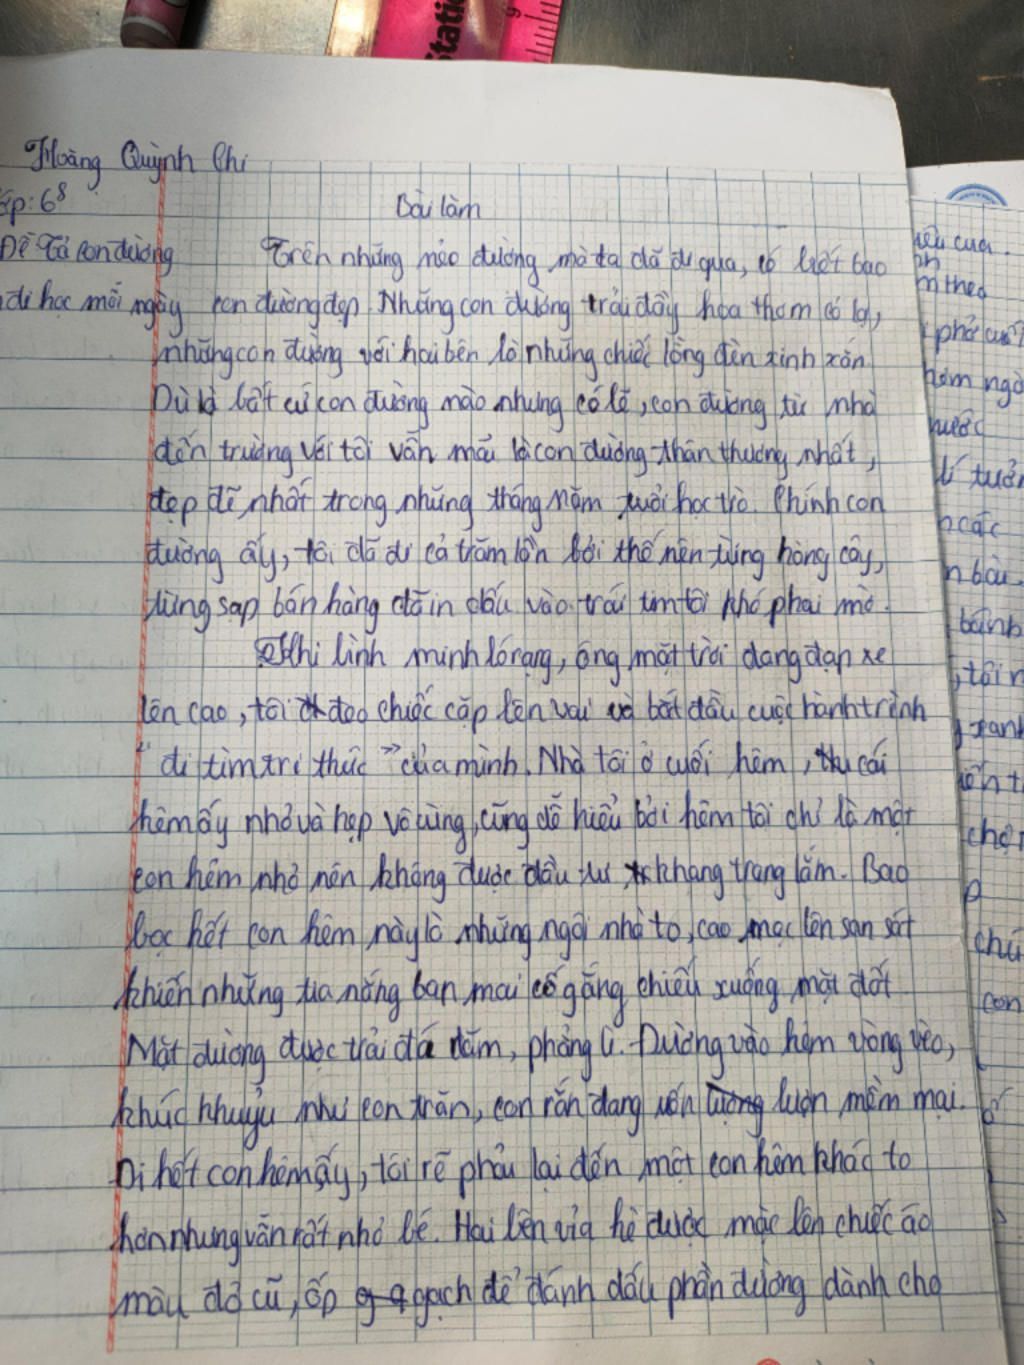 Stati
9
Hoàng Quỳnh Chi
ớp: 6⁸
Bài làm
Đề Tả con đường
đi học mỗi ngày
Trên những nẻo đường mà ta đã đi qua, có biết bao
con đường đẹp. Những con đường trải đầy hoa thơm cỏ lạ,
những con đường với hai bên là những chiếc lồng đèn xinh xắn.
Dù là bất cứ con đường nào nhưng có lẽ, con đường từ nhà
đến trường với tôi vẫn mãi là con đường thân thương nhất,
đẹp đẽ nhất trong những tháng năm tuổi học trò. Chính con
đường ấy, tôi đã đi cả trăm lần bởi thế nên từng hàng cây,
từng sạp bán hàng đã in dấu vào trái tim tôi khó phai mờ.
Khi bình minh ló rạng, ông mặt trời đang đạp xe
lên cao, tôi đeo chiếc cặp lên vai và bắt đầu cuộc hành trình
"đi tìm tri thức" của mình. Nhà tôi ở cuối hẻm, cái
hẻm ấy nhỏ và hẹp vô cùng, cũng dễ hiểu bởi hẻm tôi chỉ là một
con hẻm nhỏ nên không được đầu tư khang trang lắm. Bao
bọc hết con hẻm này là những ngôi nhà to, cao mọc lên san sát
khiến những tia nắng ban mai cố gắng chiếu xuống mặt đất
Mặt đường được trải đá dăm, phẳng lì. Đường vào hẻm vòng vèo,
khúc khuỷu như con trăn, con rắn đang uốn lượn mềm mại.
Đi hết con hẻm ấy, tôi rẽ phải lại đến một con hẻm khác to
hơn nhưng vẫn rất nhỏ bé. Hai bên vỉa hè được mặc lên chiếc áo
màu đỏ cũ, ốp gạch để đánh dấu phần đường dành cho
m theo
phở
hóm
nước
lí tưởn
các
n bài
bánh
, tôi
xanh
chợ
chú
con